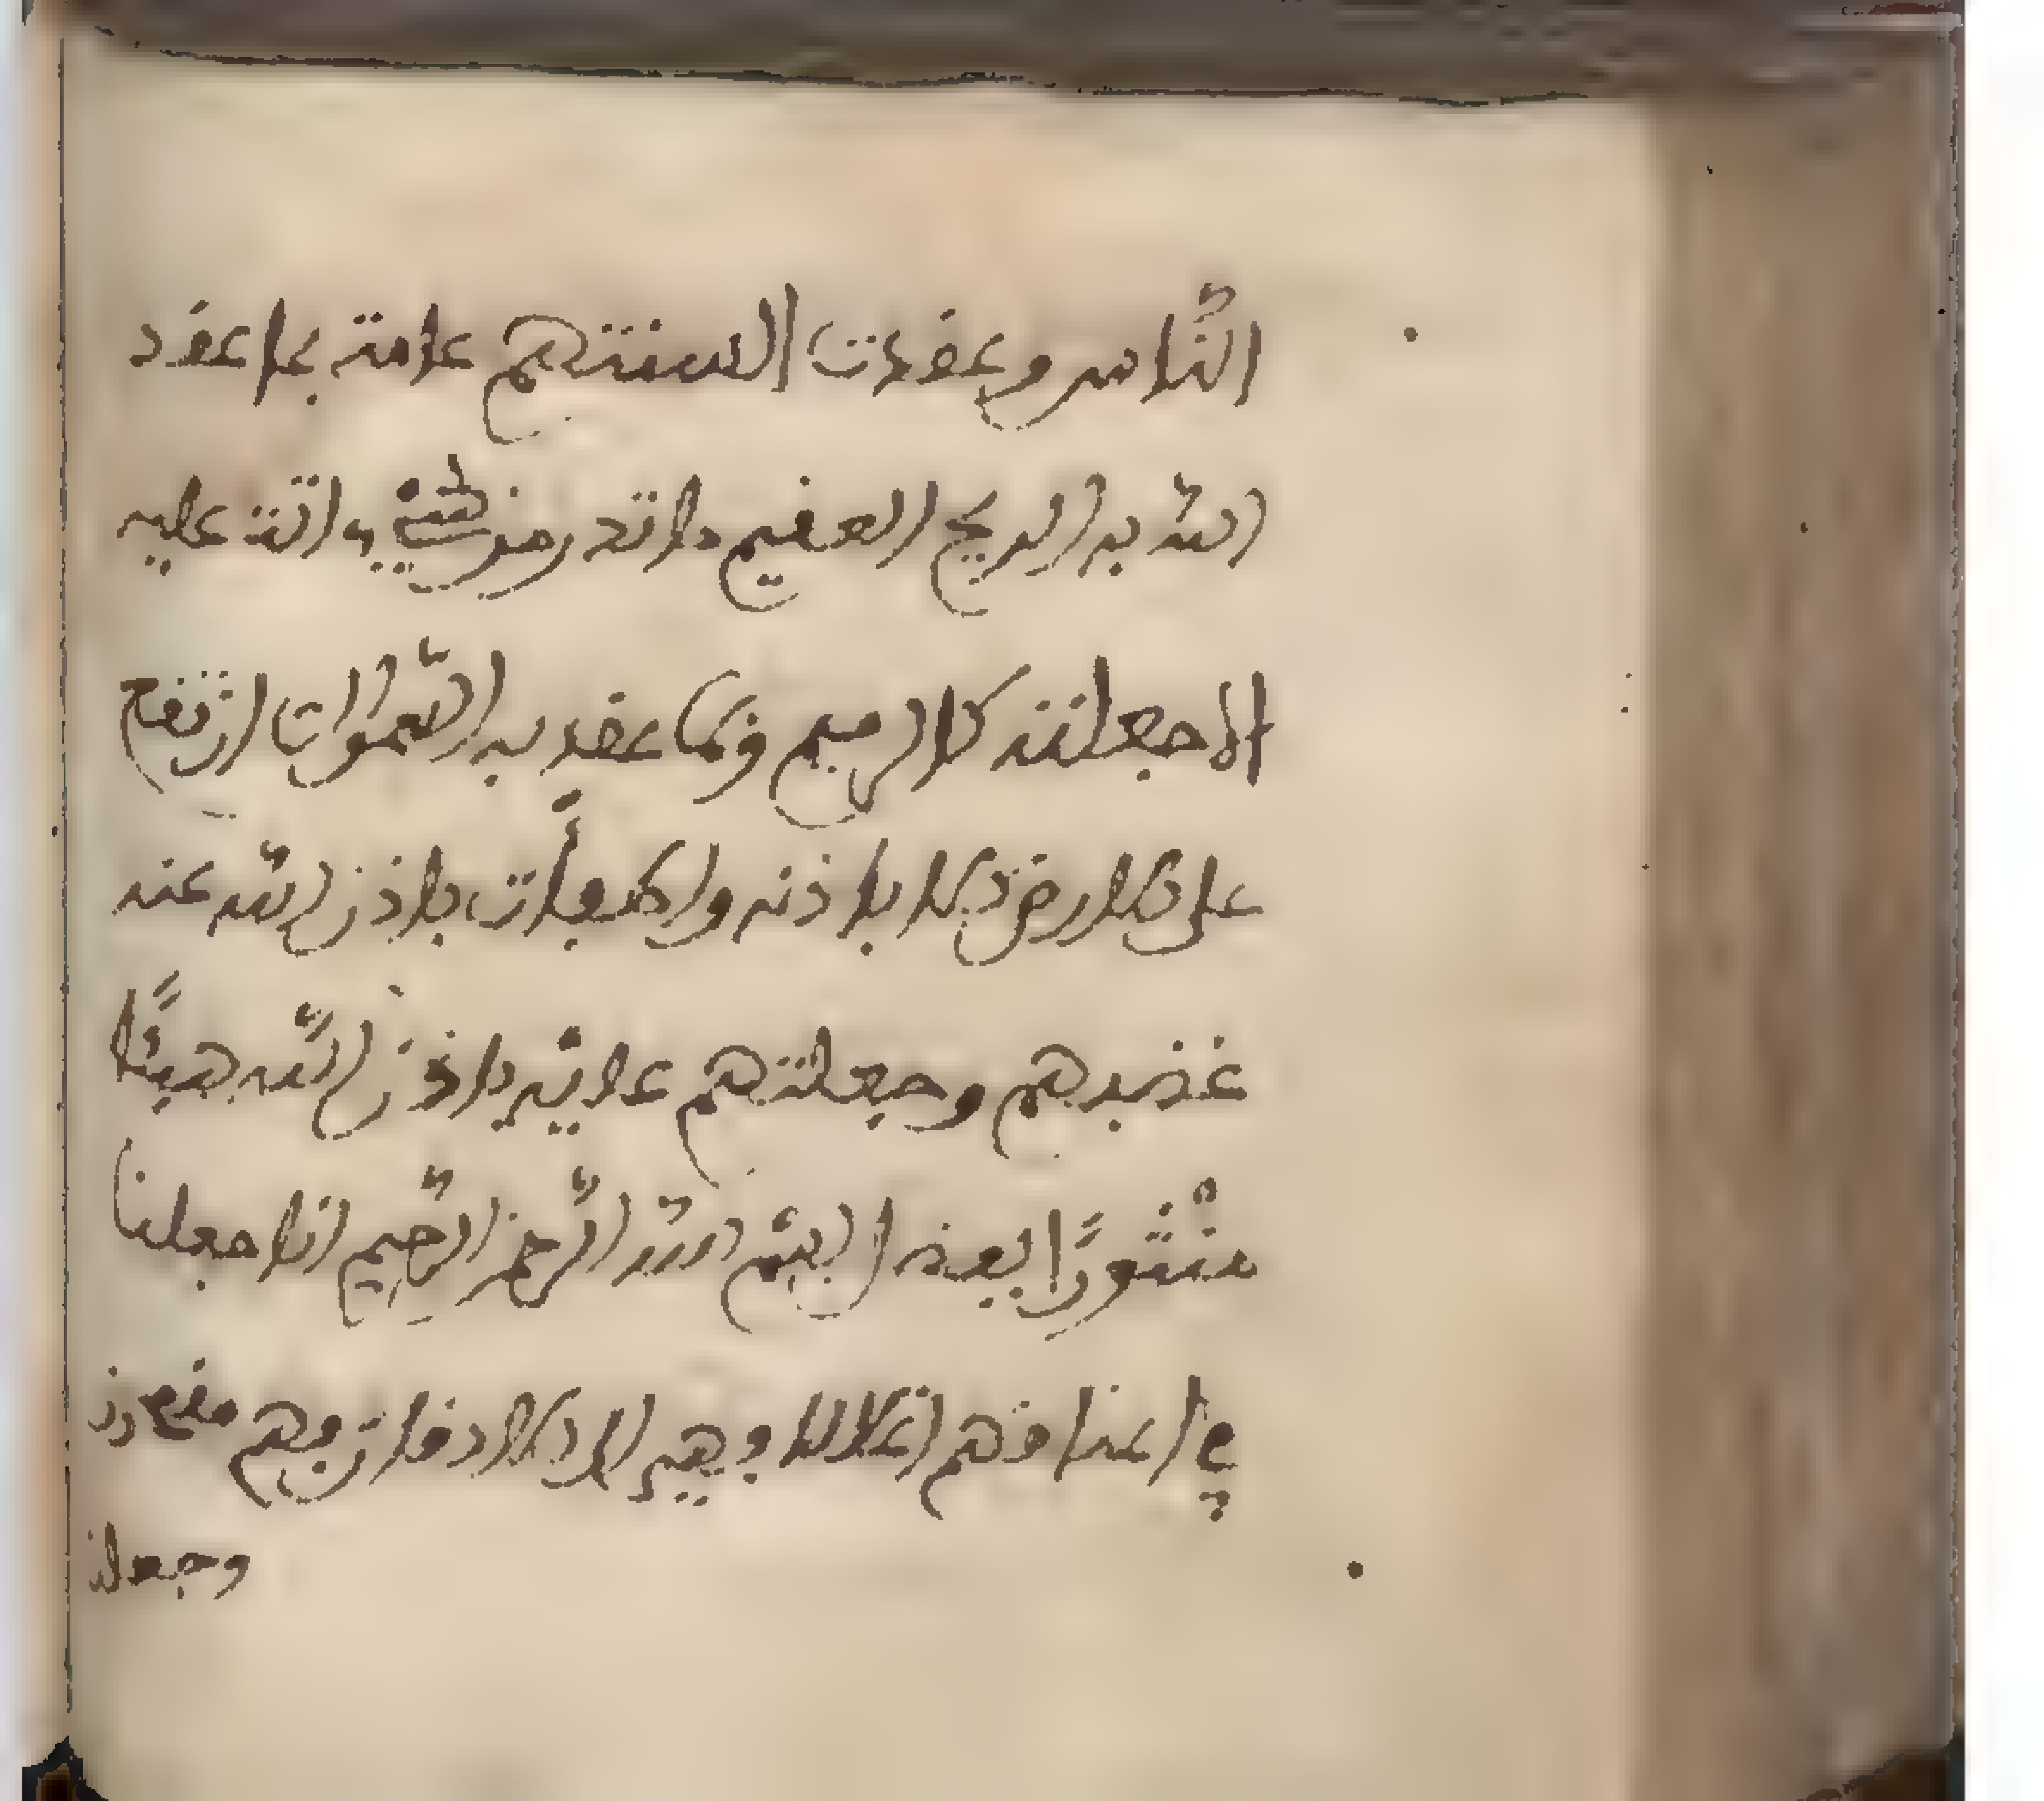 النّاس وعقدت السنتهم عامة بما عقد
الله به الريح العقيم ما تذر من شيء اتت عليه
الا جعلته كالرميم وبما عقد به السّموات ان تقع
على الارض الا باذنه واطفات باذن الله عنه
غضبهم وجعلتهم باذن الله هبئًا
منْثورًا بسم الله الرّحمن الرّحيم انا جعلنا
في اعناقهم اغلالا فهي الى الاذقان فهم مقمحون
وجعلنا